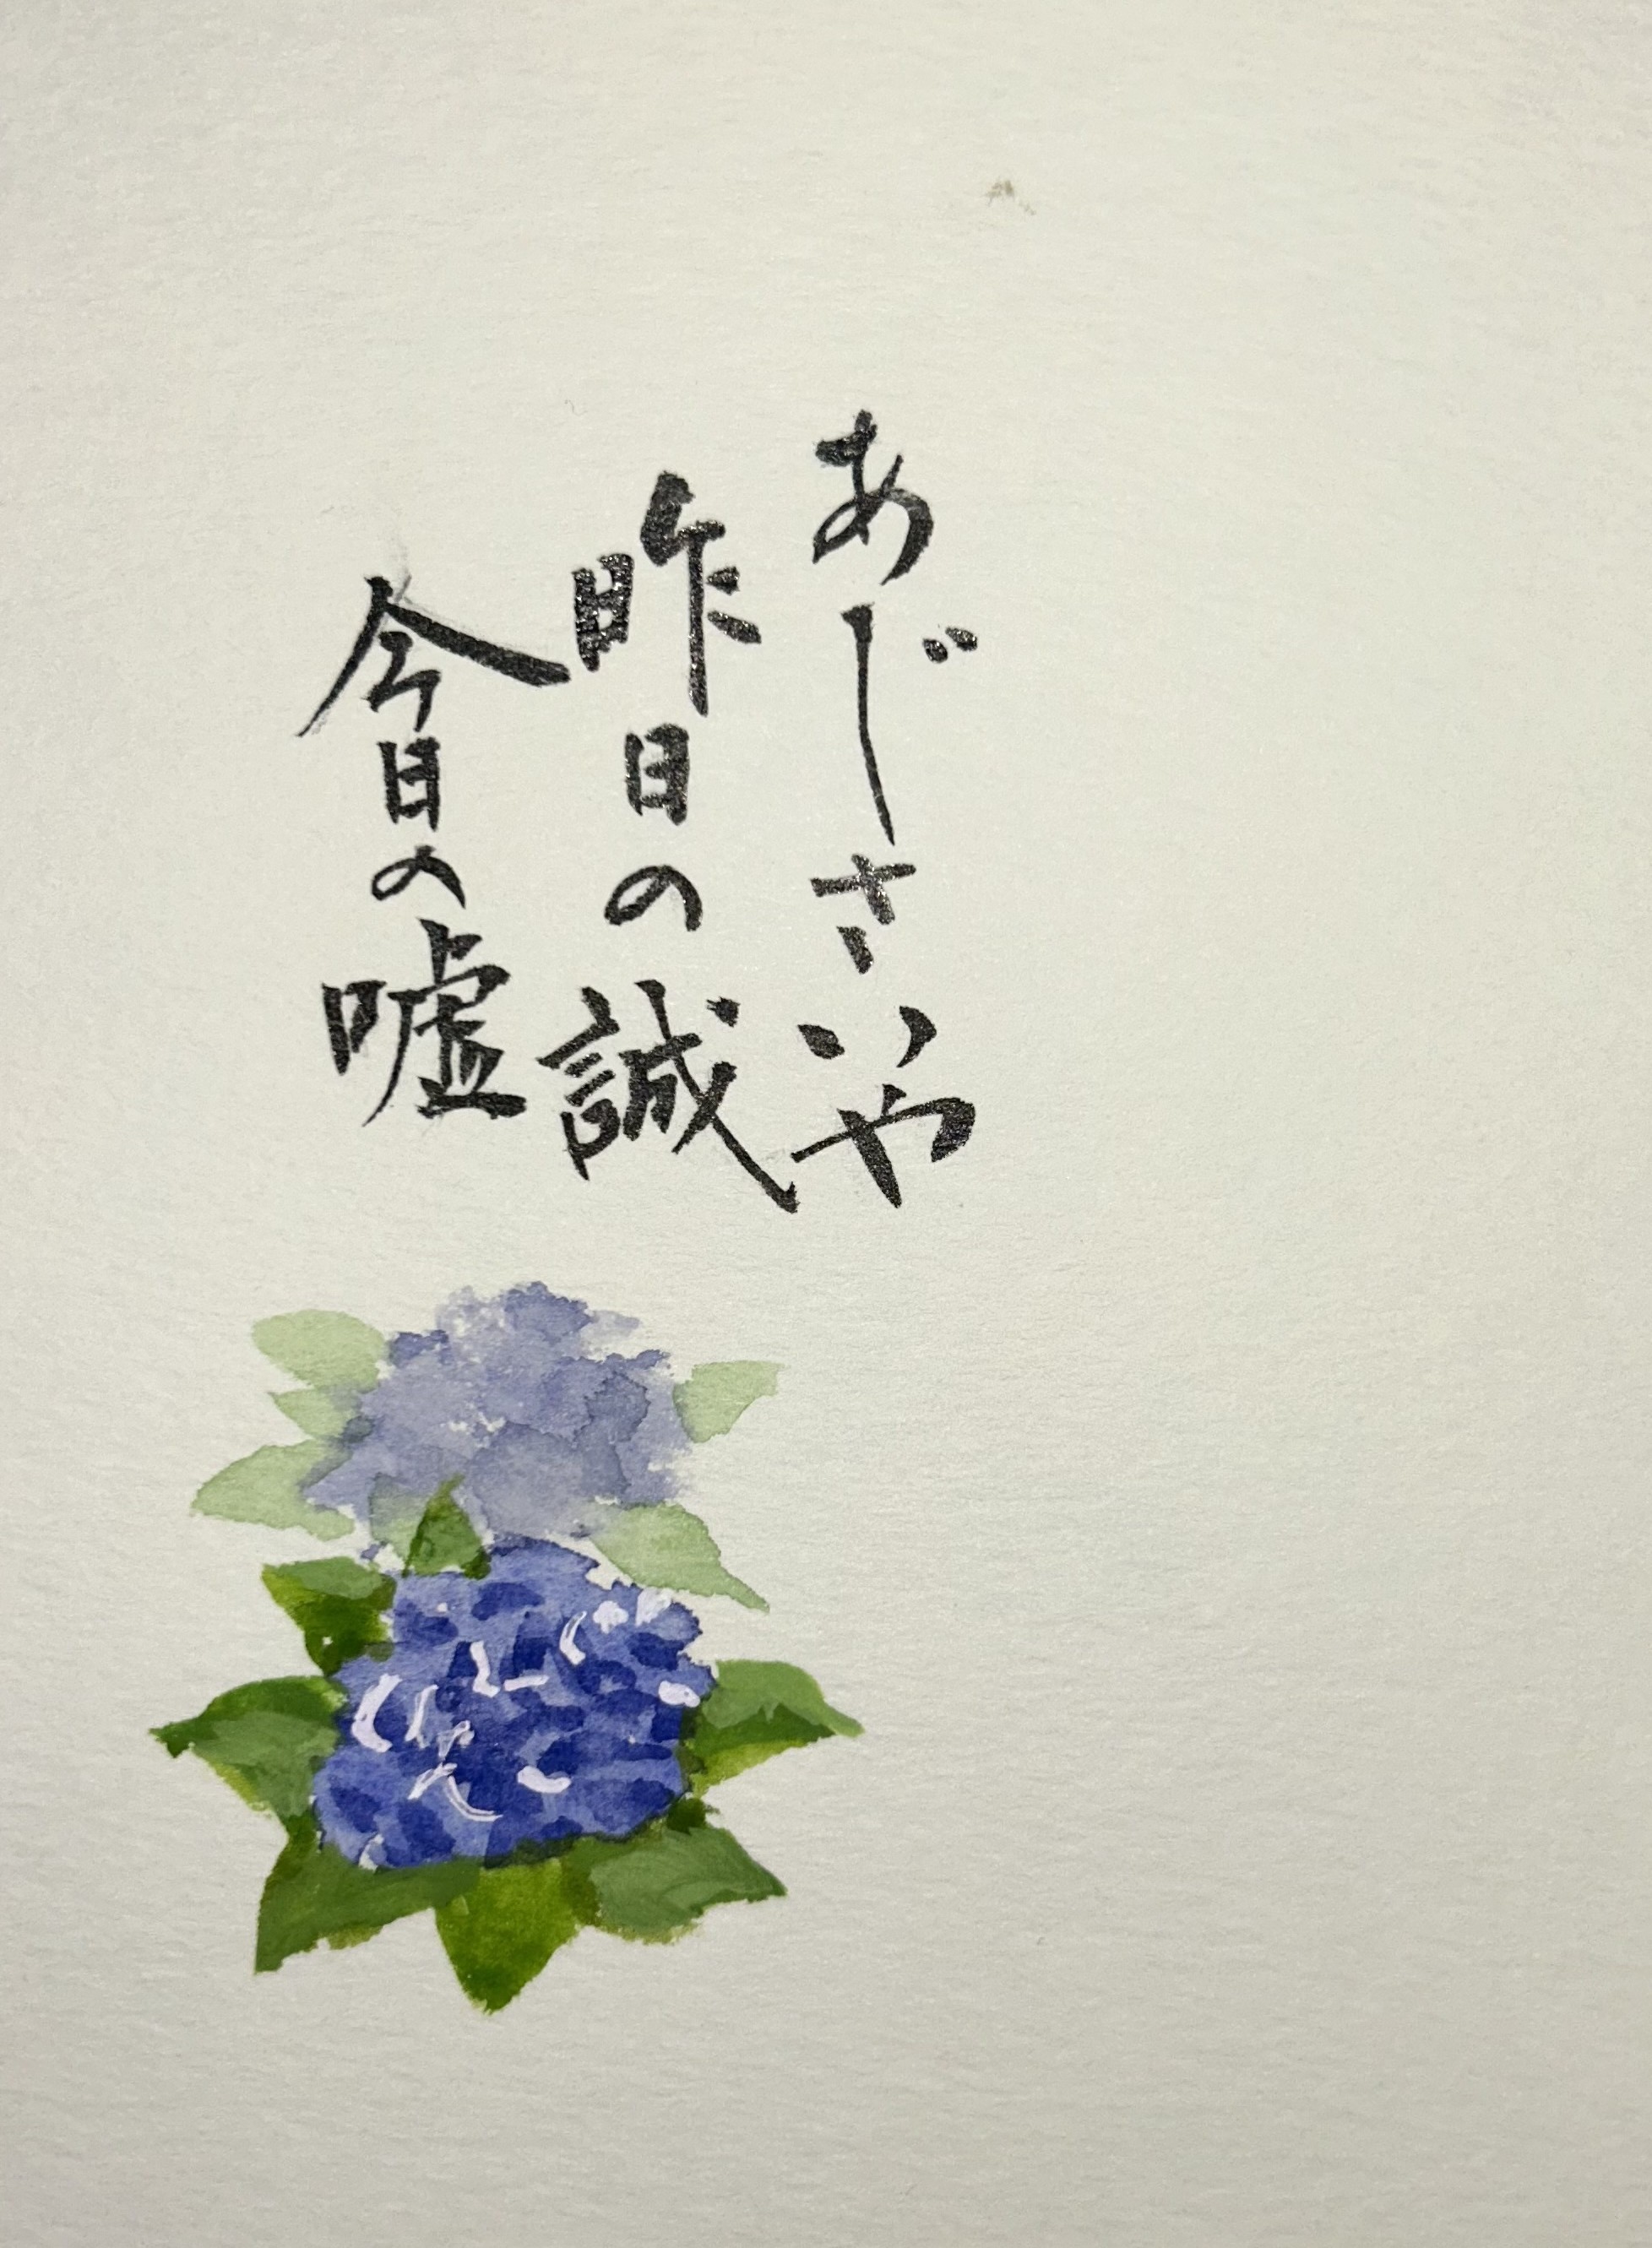 あじさいや
昨日の誠
今日の嘘